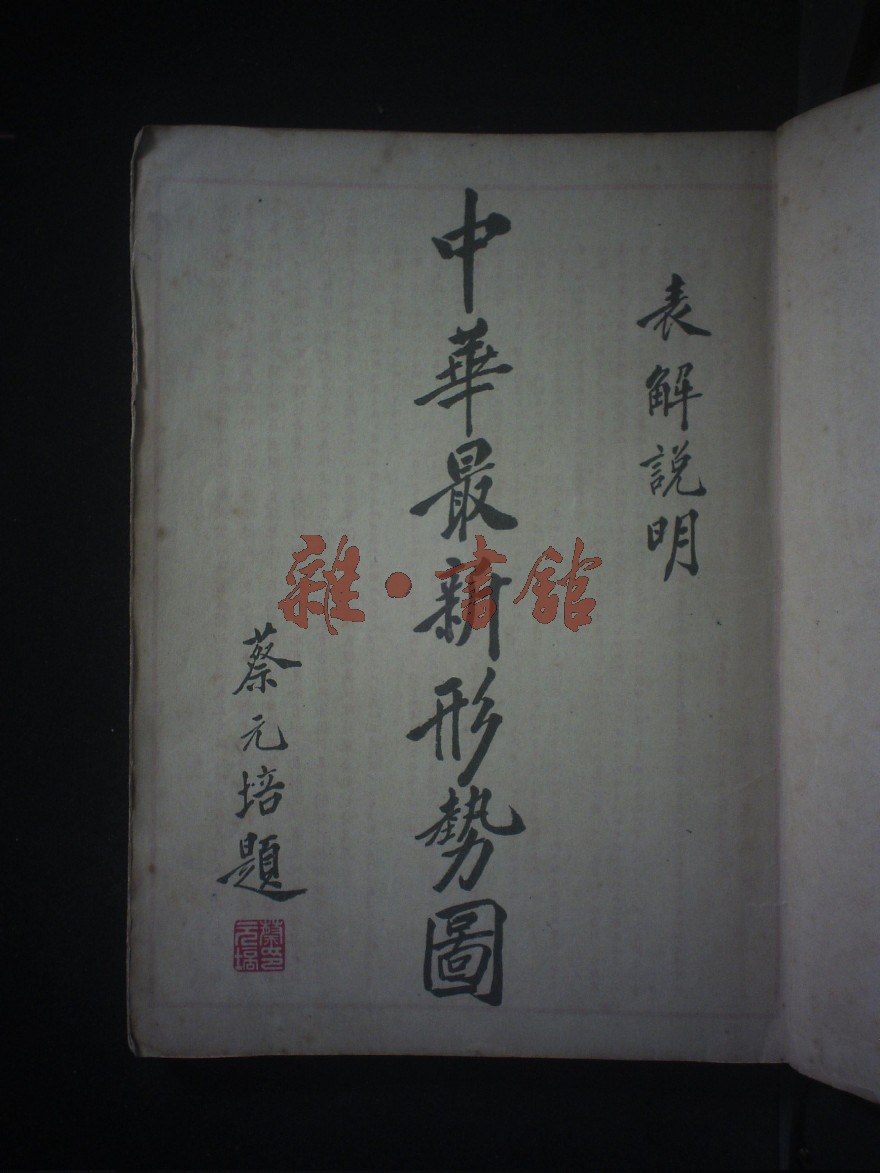 表解說明
中華最新形勢圖
蔡元培題
蔡元培印
雜·書館